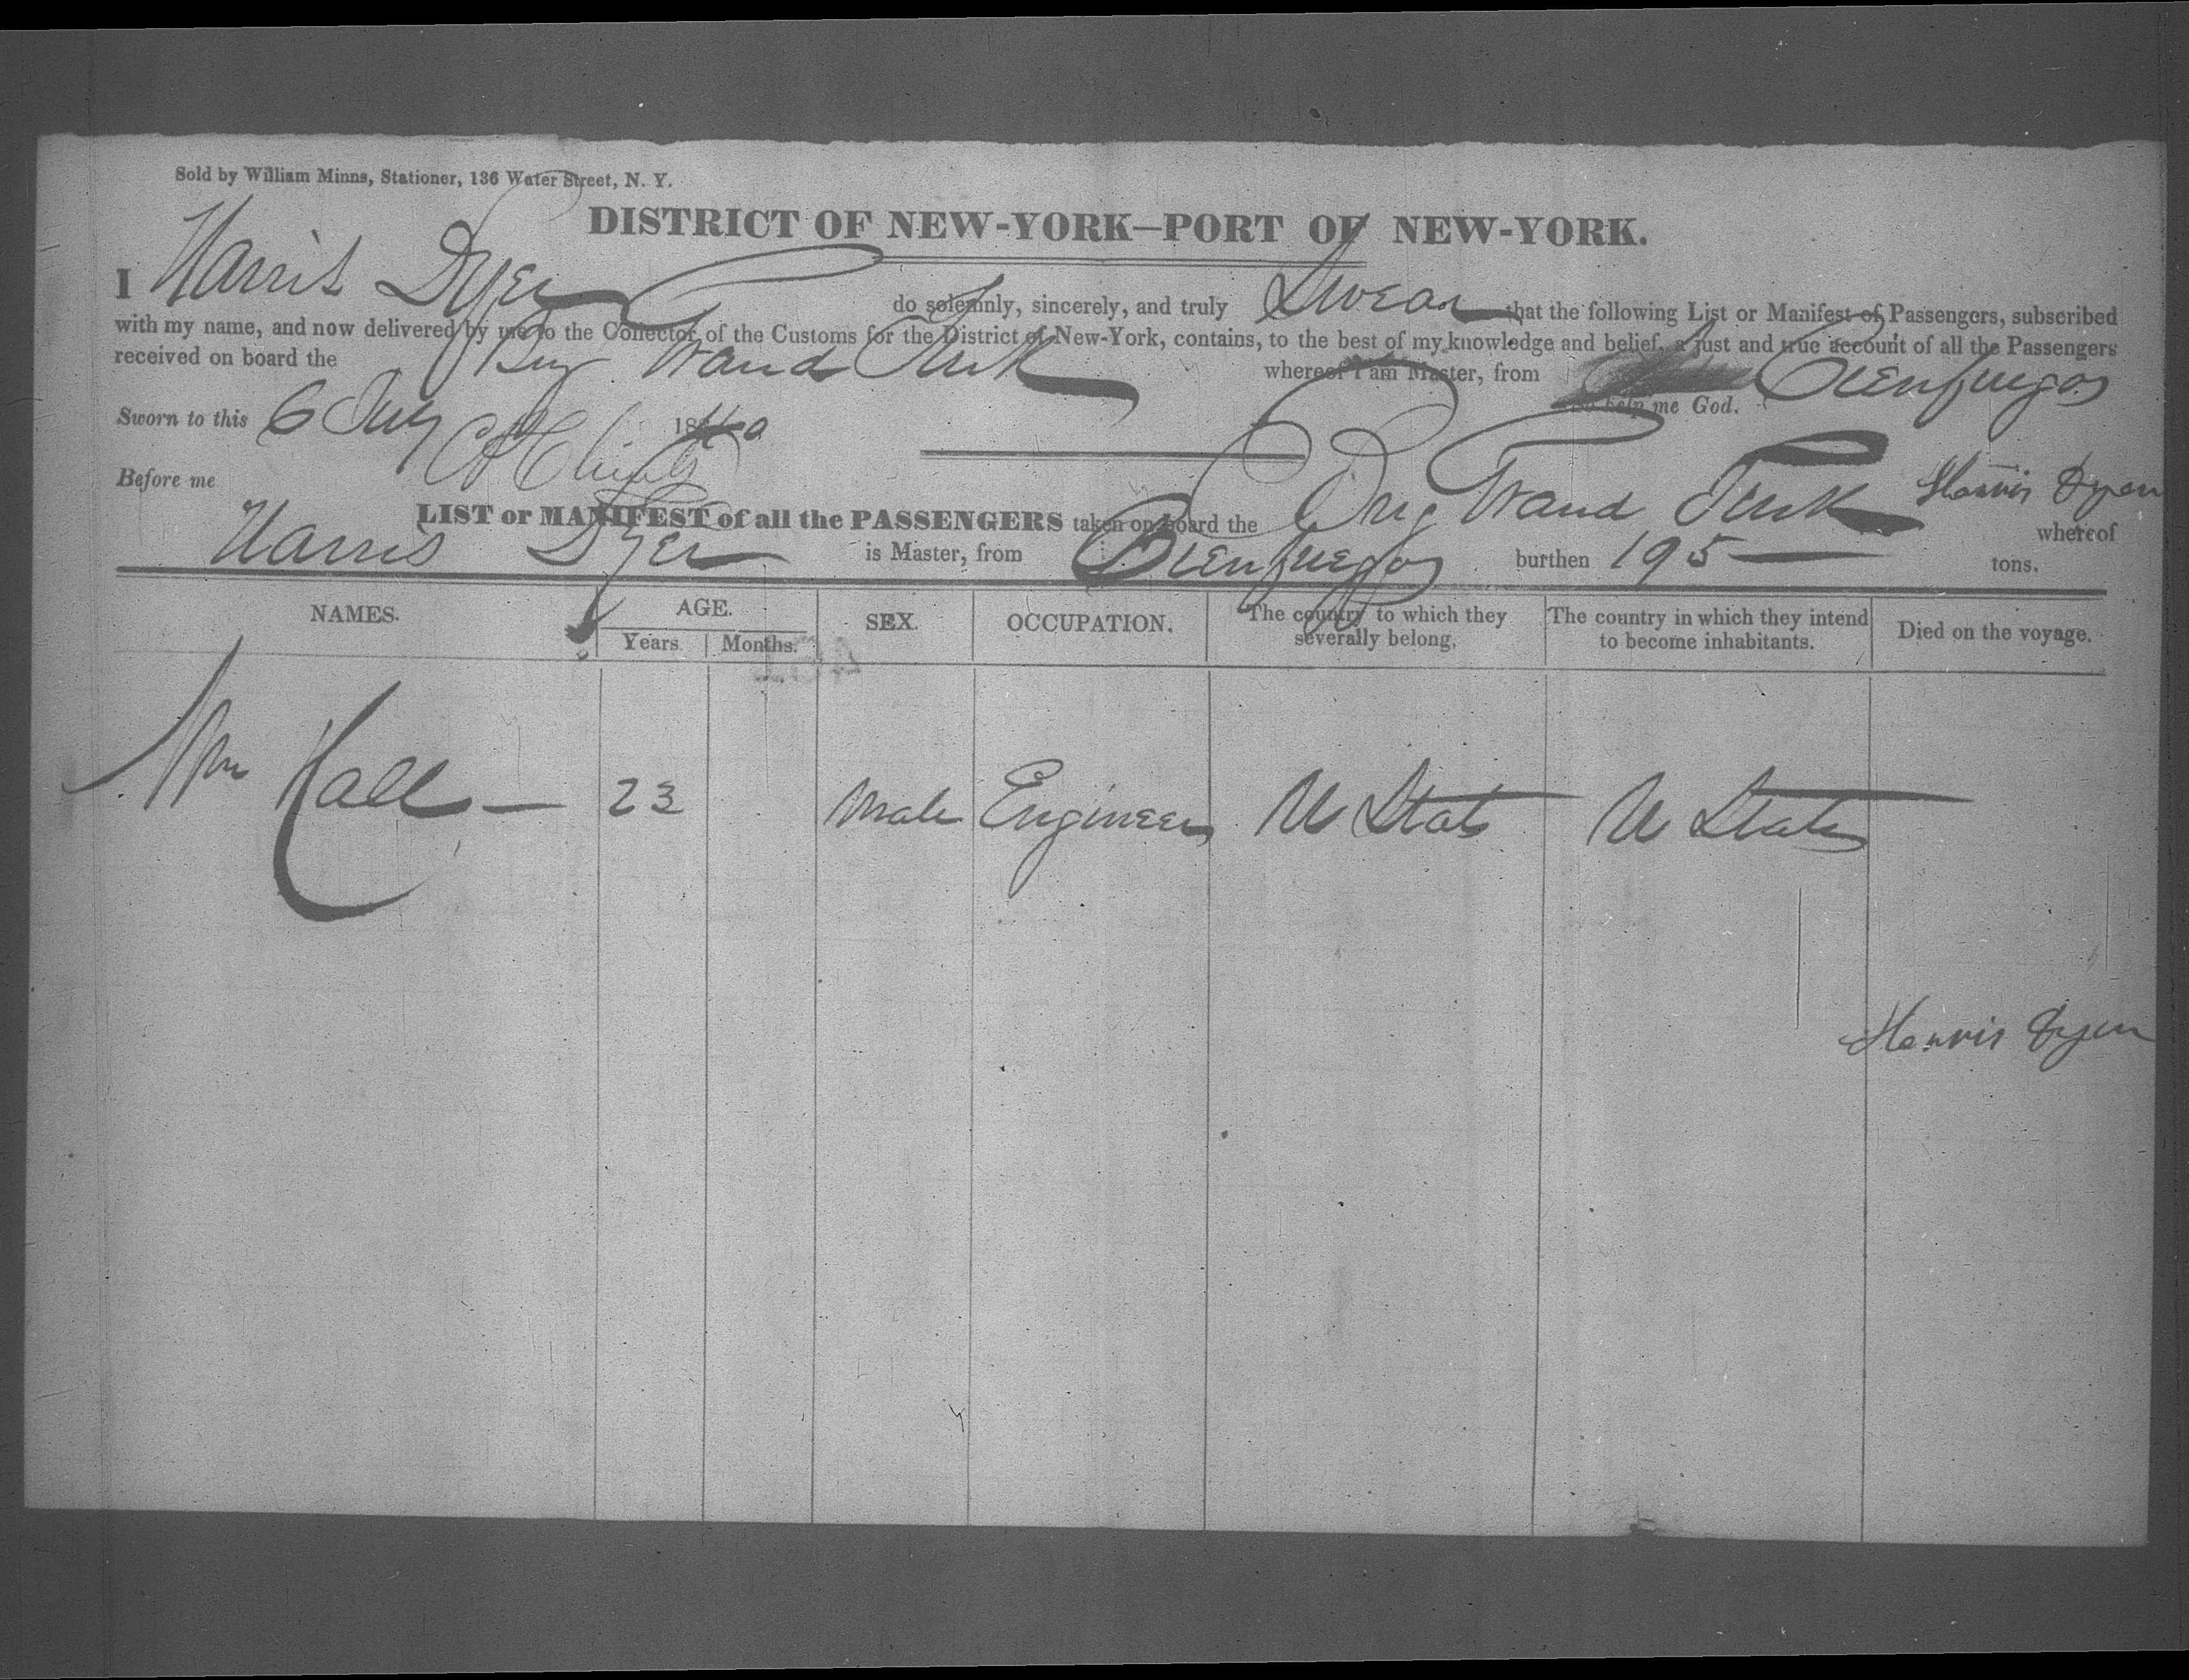 Sold by William Minns, Stationer, 136 Water Street, N. Y.
DISTRICT OF NEW-YORK—PORT OF NEW-YORK.
I Harris Dyer do solemnly, sincerely, and truly Swear that the following List or Manifest of Passengers, subscribed
with my name, and now delivered by me to the Collector of the Customs for the District of New-York, contains, to the best of my knowledge and belief, a just and true account of all the Passengers
received on board the Brig Grand Turk whereof I am Master, from Cienfuegos
So help me God.
Sworn to this 6 July 1840
Before me
Harris Dyer
LIST or MANIFEST of all the PASSENGERS taken on board the Brig Grand Turk whereof
Harris Dyer is Master, from Cienfuegos burthen 195 tons.
NAMES. AGE. SEX. OCCUPATION. The country to which they severally belong. The country in which they intend to become inhabitants. Died on the voyage.
Years. Months.
Wm Hall — 23 Male Engineer U States U States
Harris Dyer